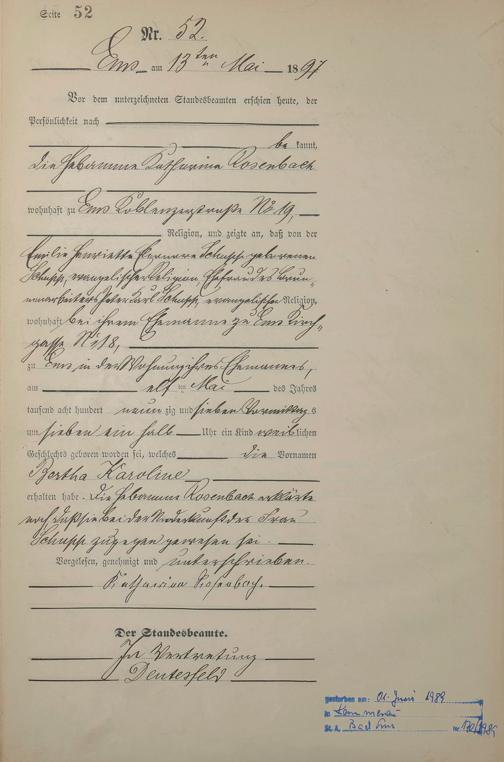 Seite 52
Nr. 52.
Ems am 13ten Mai 1897
Vor dem unterzeichneten Standesbeamten erschien heute, der
Persönlichkeit nach
be kannt,
die Hebamme Katharina Rosenbach
wohnhaft zu Ems Koblenzerstraße No 19,
Religion, und zeigte an, daß von der
Emilie Henriette Schupp geborenen
Schupp, evangelischer Religion Ehefrau des Brun-
nenarbeiters Peter Karl Schupp, evangelischer Religion,
wohnhaft bei ihrem Ehemanne zu Ems Kirch-
gasse No 18,
zu Ems, in der Wohnung ihres Ehemannes,
am elf ten Mai des Jahres
tausend acht hundert neun zig und sieben Vormittags
um sieben ein halb Uhr ein Kind weiblichen
Geschlechts geboren worden sei, welches die Vornamen
Bertha Karoline
erhalten habe. Die Hebamme Rosenbach erklärte
noch daß sie bei der Niederkunft der Frau
Schupp zugegen gewesen sei.
Vorgelesen, genehmigt und unterschrieben.
Katharina Rosenbach.
Der Standesbeamte.
In Vertretung
gestorben am: 01. Juni 1989
in
St. A. Bad Ems nr.